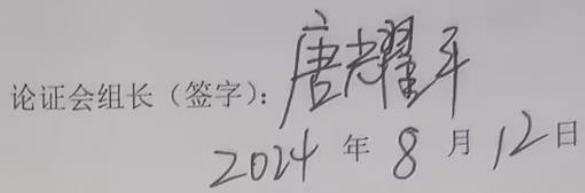 论证会组长（签字）：唐耀平
2024年8月12日